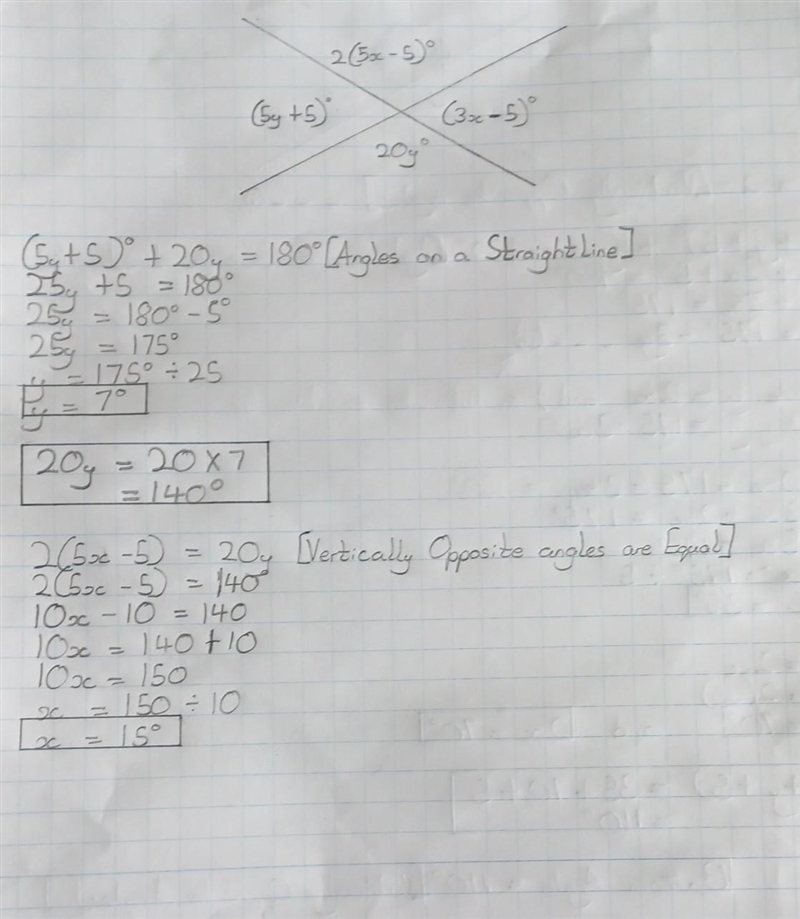 2(5x-5)°
(5y+5)° (3x-5)°
20y°
(5y+5)° + 20y = 180° [Angles on a Straight Line]
25y + 5 = 180°
25y = 180° - 5°
25y = 175°
y = 175° ÷ 25
y = 7°
20y = 20 x 7
= 140°
2(5x-5) = 20y [Vertically Opposite angles are Equal]
2(5x-5) = 140°
10x - 10 = 140
10x = 140 + 10
10x = 150
x = 150 ÷ 10
x = 15°